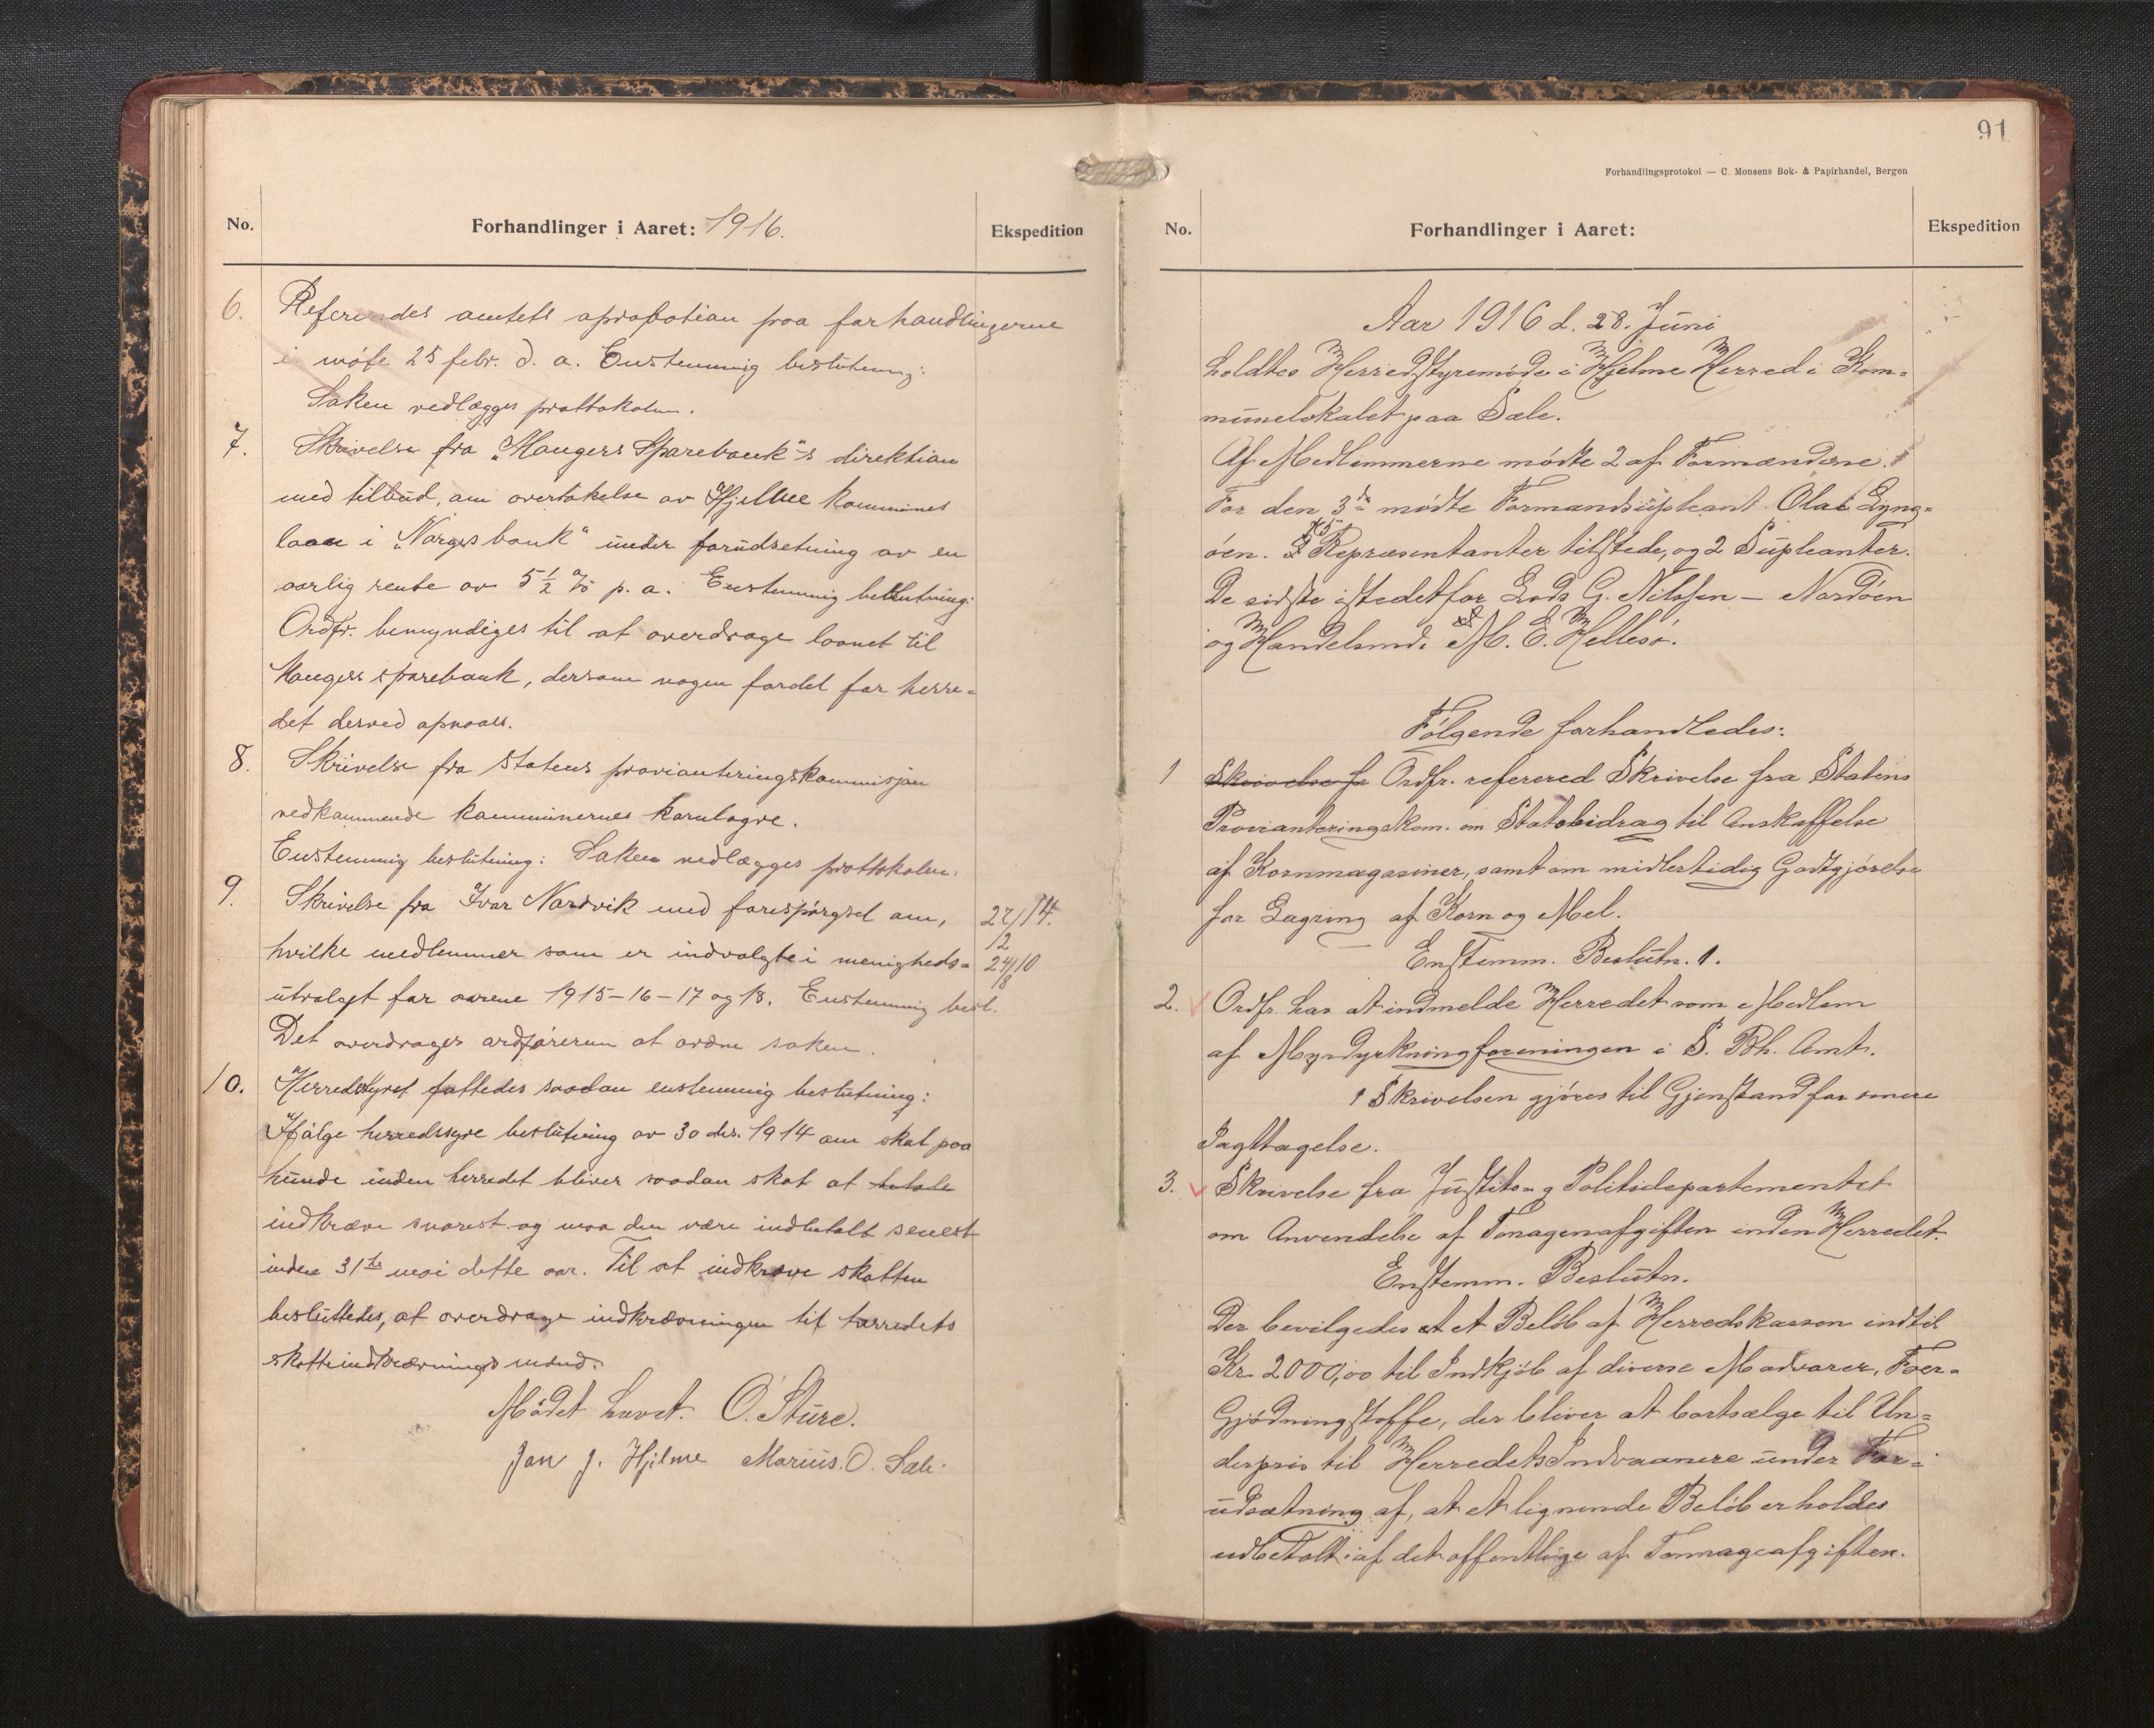 No. Forhandlinger i Aaret: 1916. Ekspedition
6. Referendes amtets aprobotian paa forhandlingerne
i møte 25 febr. d. a. Enstemmig beslutning:
Saken vedlægges prottokolen.
7. Skrivelse fra "Mangers Sparebank"s direktian
med tilbud, om overtakelse av Hjelme kommunes
laan i "Norges bank" under forudsetning av en
aarlig rente av 5 1/2 % p. a. Enstemmig beslutning:
Ordfr. bemyndiges til at overdrage laanet til
Mangers sparebank, dersom nogen fordel for herre=
det derved opnaaes.
8. Skrivelse fra Statens provianteringskommisjon
vedkommende kommunernes kornlagre.
Enstemmig beslutning: Saken vedlægges prottokolen.
9. Skrivelse fra Ivar Nordvik med forespørgsel om,
hvilke medlemmer som er indvalgte i menigheds=
utvalgt for aarene 1915-16-17 og 18. Enstemmig besl.
Det overdrages ordføreren at ordne saken.
10. Herredstyret fattedes saadan enstemmig beslutning:
Ifølge herredssyre beslutning av 30 des. 1914 om skat paa
hunde inden herredet bliver saadan skat at betale
indkræve snarest og maa den være indbetalt senest
inden 31te mai dette aar. Til at indkræve skatten
besluttedes, at overdrage indkrævningen til herredets
skatteindkrævningsmand.
Mødet hævet. O. Sture.
Jan J. Hjelme Marius. O. Sæle.
91
Forhandlingsprotokol — C. Monsens Bok- & Papirhandel, Bergen
No. Forhandlinger i Aaret: Ekspedition
Aar 1916 d. 28. Juni
holdtes Herredstyremøde i Hjelme Herred i Kom=
munelokalet paa Sæle.
Af Medlemmerne mødte 2 af Formændene.
For den 3de mødte Formandsupleant Olai Lyng=
øen. 5 Repræsentanter tilstede, og 2 Supleanter.
De sidste istedetfor Lods G. Nilssen — Nordøen
og Handelsmd. M. E. Hellesø.
Følgende forhandledes:
1 Skrivelse fr Ordfr. referered Skrivelse fra Statens
Provianteringskom. om Statsbidrag til Anskaffelse
af Kornmagasiner, samt om midlertidig Godtgjørelse
for Lagring af Korn og Mel.
Enstemm. Beslutn. 1.
2. Ordfr. har at indmelde Herredet som Medlem
af Myrdyrkningforeningen i S. Bh. Amt.
1 Skrivelsen gjøres til Gjenstand for senere
Iagttagelse.
3. Skrivelse fra Justits- og Politidepartementet
om Anvendelse af Tonagenafgiften inden Herredet.
Enstemm. Beslutn.
Der bevilgedes et et Beløb af Herredskassen indtil
Kr. 2000,00 til Indkjøb af diverse Madvarer, Foer=
Gjødningstoffe, der bliver at bortsælge til Un=
derpris til Herredets Indvaanere under For=
udsætning af, at et lignende Beløb erholdes
udbetalt af det offentlige af Tonnageafgiften.